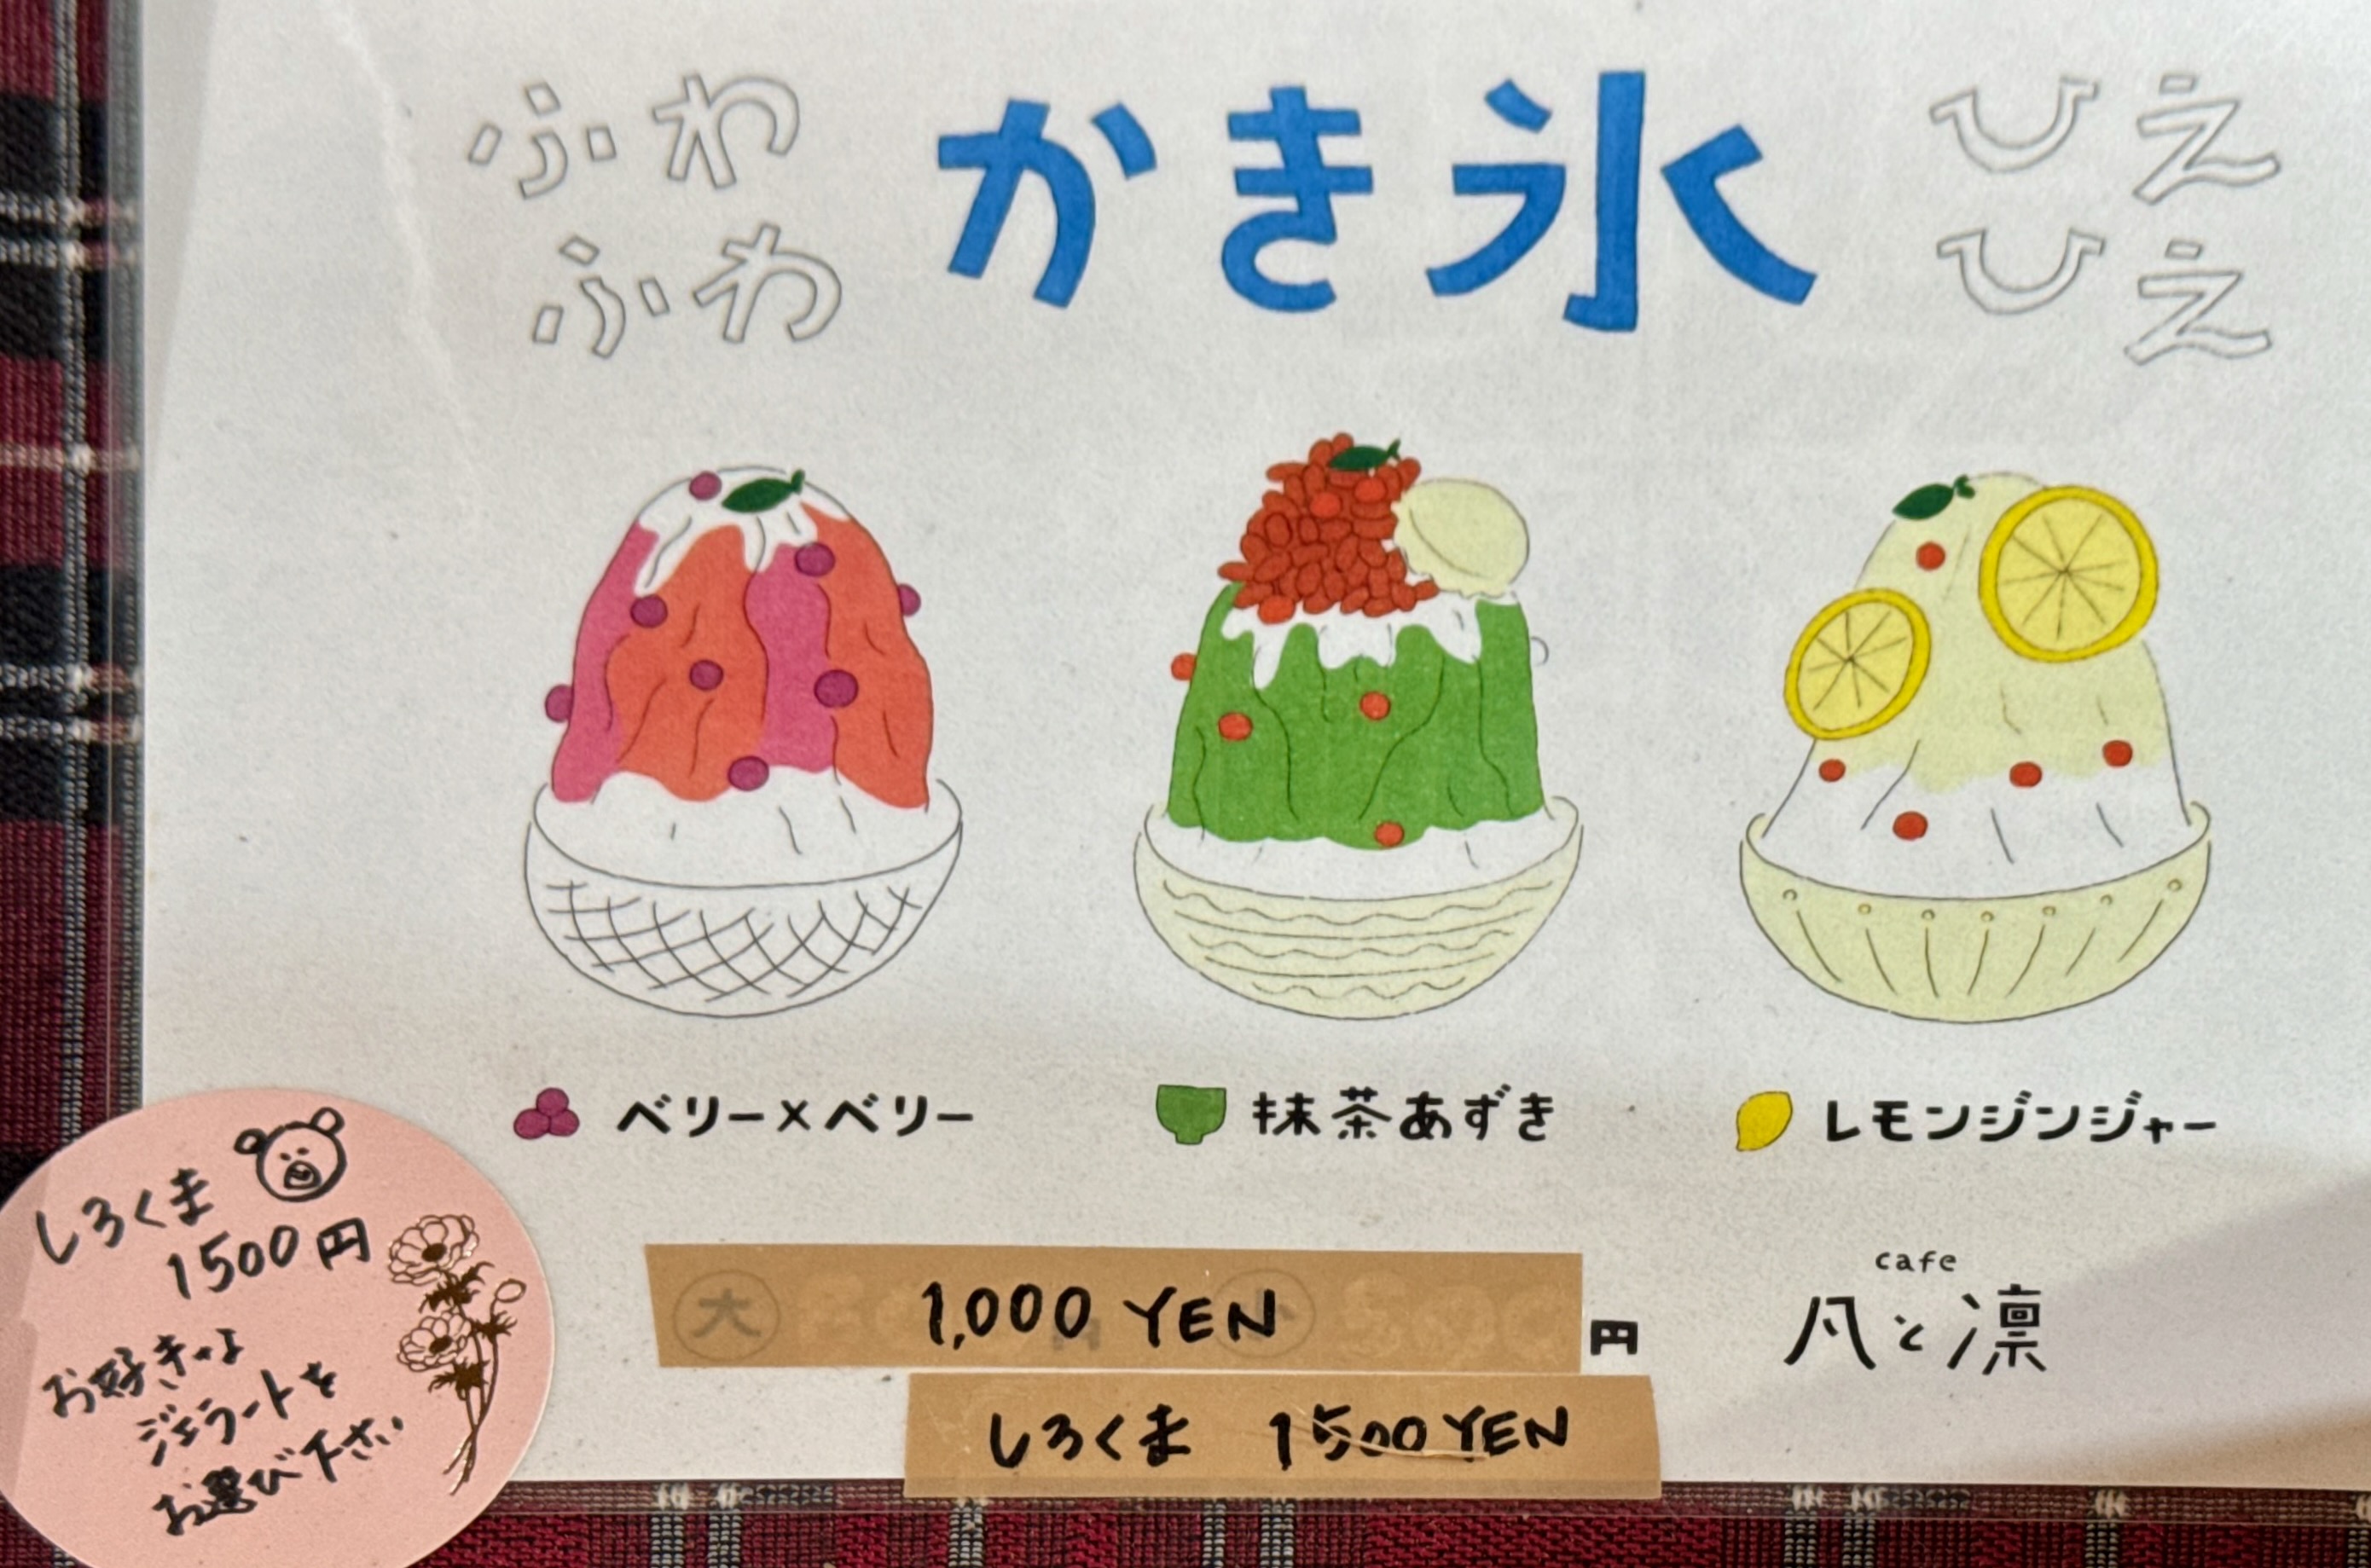 ふわ
ふわ
かき氷
ひえ
ひえ
ベリー×ベリー
抹茶あずき
レモンジンジャー
しろくま
1500円
お好きな
ジェラートを
お選び下さい
大 小
1,000 YEN 円
しろくま 1500 YEN
cafe
凡と凛